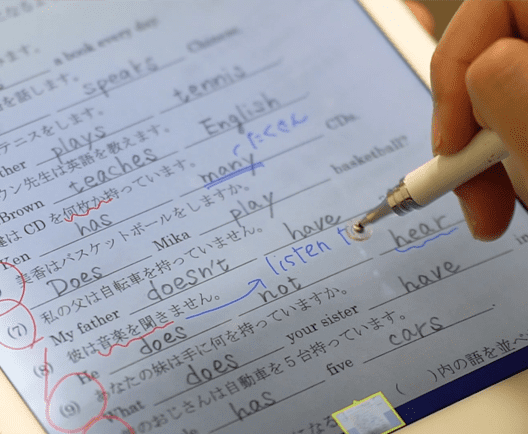 a book every day.
を話します。
speaks Chinese.
テニスをします。
plays tennis
ウン先生は英語を教えます。
Brown teaches English
たくさん
は CD を何枚か持っています。
Ken has many CDs.
バスケットボールをしますか。
Does Mika play basketball?
美香はバスケットボールをしますか。
私の父は自転車を持っていません。
(7) My father doesn't have
listen t
彼は音楽を聞きません。
(8) He does not hear
あなたの妹は手に何を持っていますか。
(9) What does your sister have in
のおじさんは自動車を5台持っています。
has five cars
( )内の語を並べ